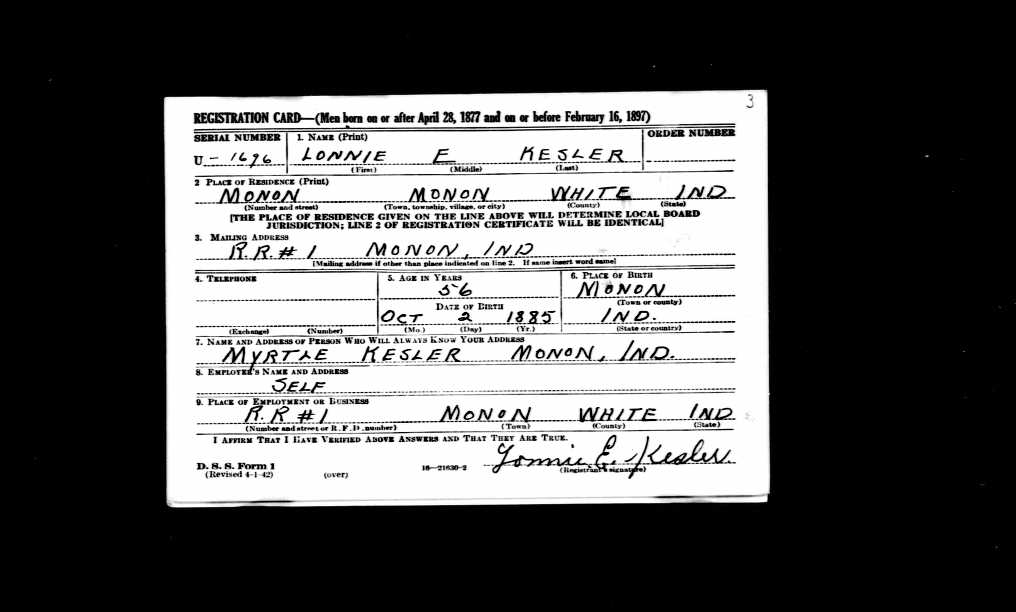 3
REGISTRATION CARD—(Men born on or after April 28, 1877 and on or before February 16, 1897)
SERIAL NUMBER 1. NAME (Print) ORDER NUMBER
U - 1696 LONNIE E KESLER
(First) (Middle) (Last)
2 PLACE OF RESIDENCE (Print)
MONON MONON WHITE IND
(Number and street) (Town, township, village, or city) (County) (State)
[THE PLACE OF RESIDENCE GIVEN ON THE LINE ABOVE WILL DETERMINE LOCAL BOARD
JURISDICTION; LINE 2 OF REGISTRATION CERTIFICATE WILL BE IDENTICAL]
3. MAILING ADDRESS
R.R.# 1 MONON, IND
[Mailing address if other than place indicated on line 2. If same insert word same]
4. TELEPHONE 5. AGE IN YEARS 6. PLACE OF BIRTH
56 MONON
DATE OF BIRTH (Town or county)
OCT 2 1885 IND.
(Exchange) (Number) (Mo.) (Day) (Yr.) (State or country)
7. NAME AND ADDRESS OF PERSON WHO WILL ALWAYS KNOW YOUR ADDRESS
MYRTLE KESLER MONON, IND.
8. EMPLOYER'S NAME AND ADDRESS
SELF
9. PLACE OF EMPLOYMENT OR BUSINESS
R.R #1 MONON WHITE IND
(Number and street or R. F. D. number) (Town) (County) (State)
I AFFIRM THAT I HAVE VERIFIED ABOVE ANSWERS AND THAT THEY ARE TRUE.
Lonnie E. Kesler
D. S. S. Form 1 16—21630-2 (Registrant's signature)
(Revised 4-1-42) (over)